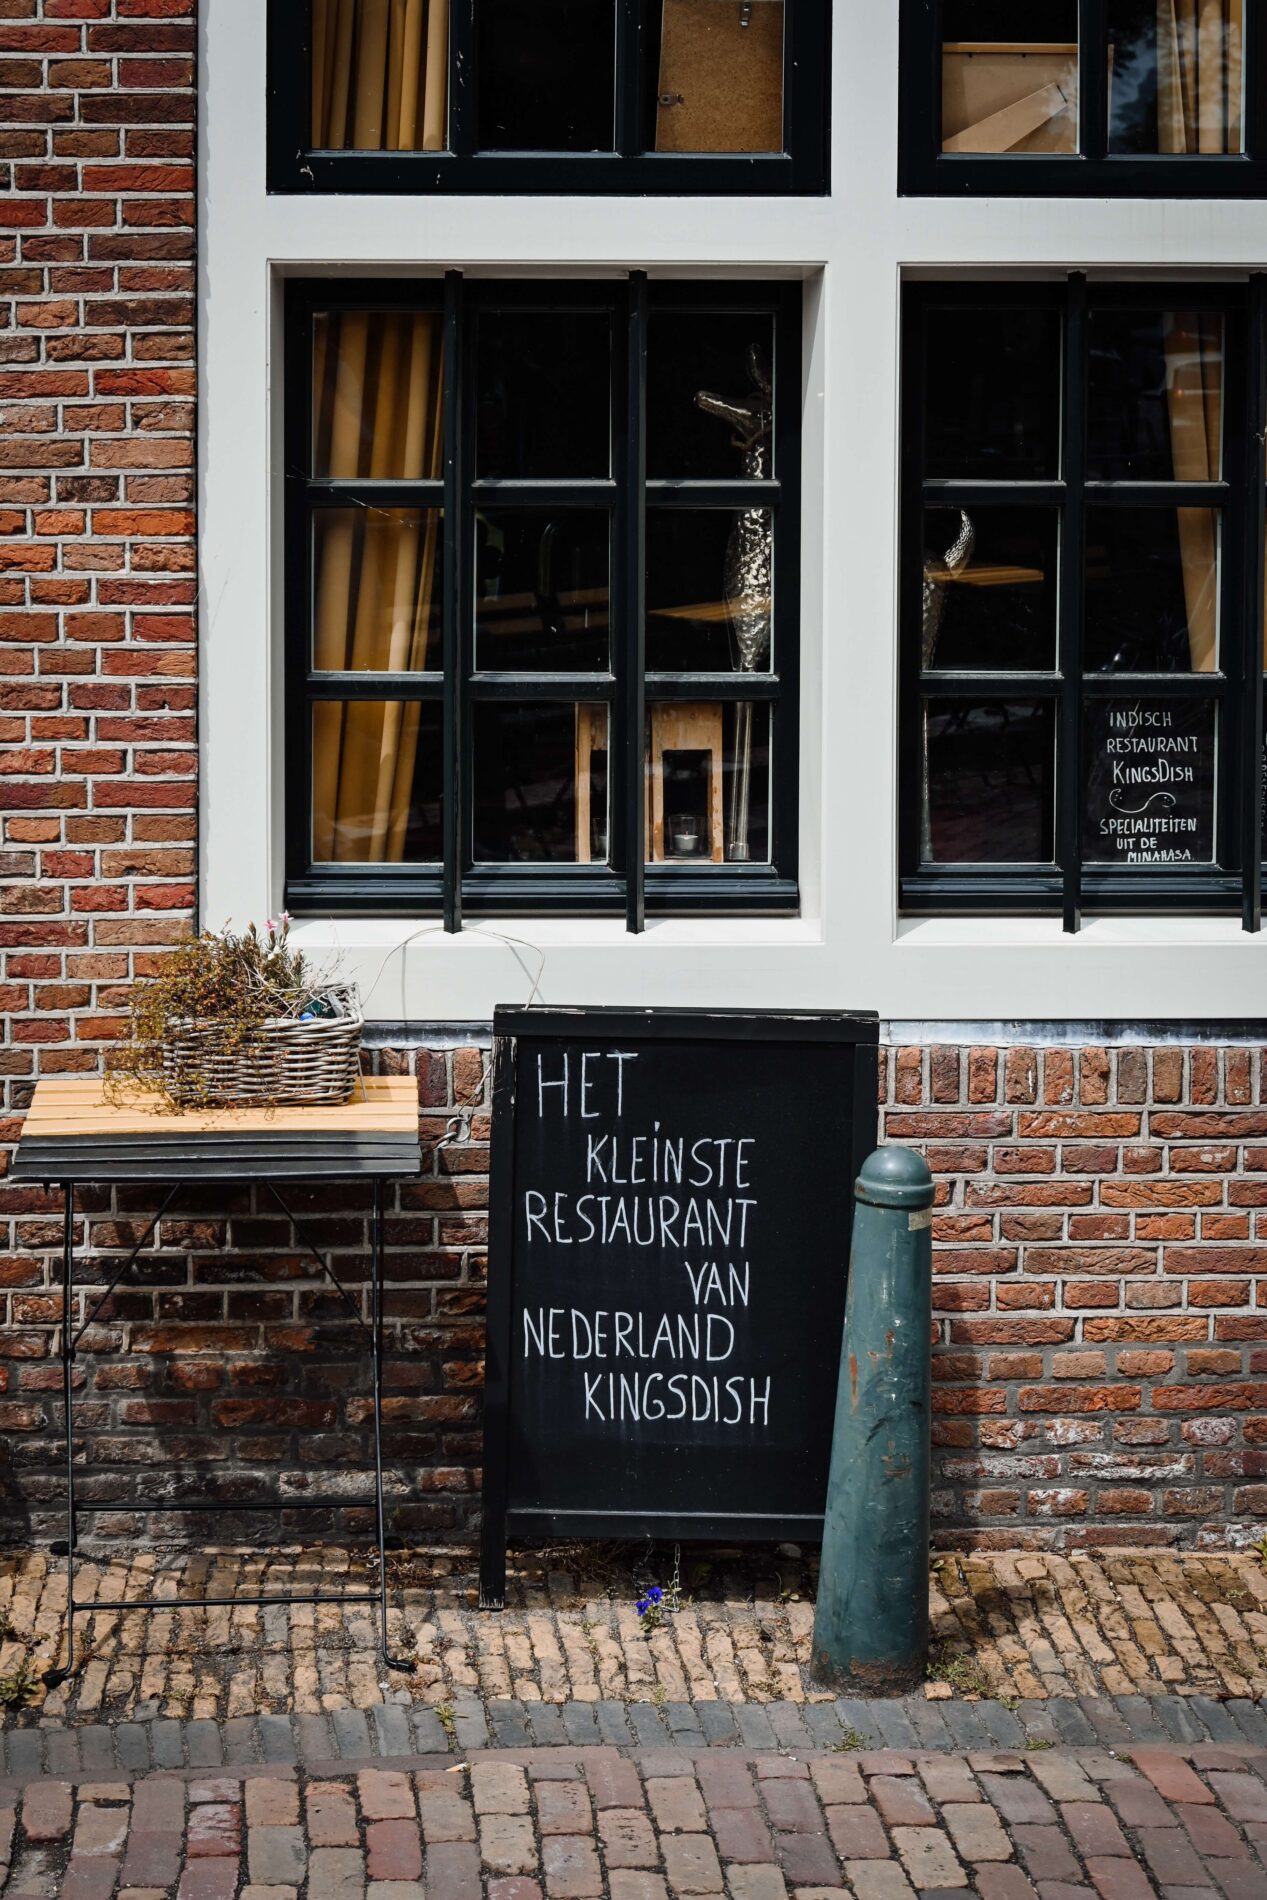 INDISCH
RESTAURANT
KINGSDISH
SPECIALITEITEN
UIT DE
MINAHASA
HET
KLEINSTE
RESTAURANT
VAN
NEDERLAND
KINGSDISH